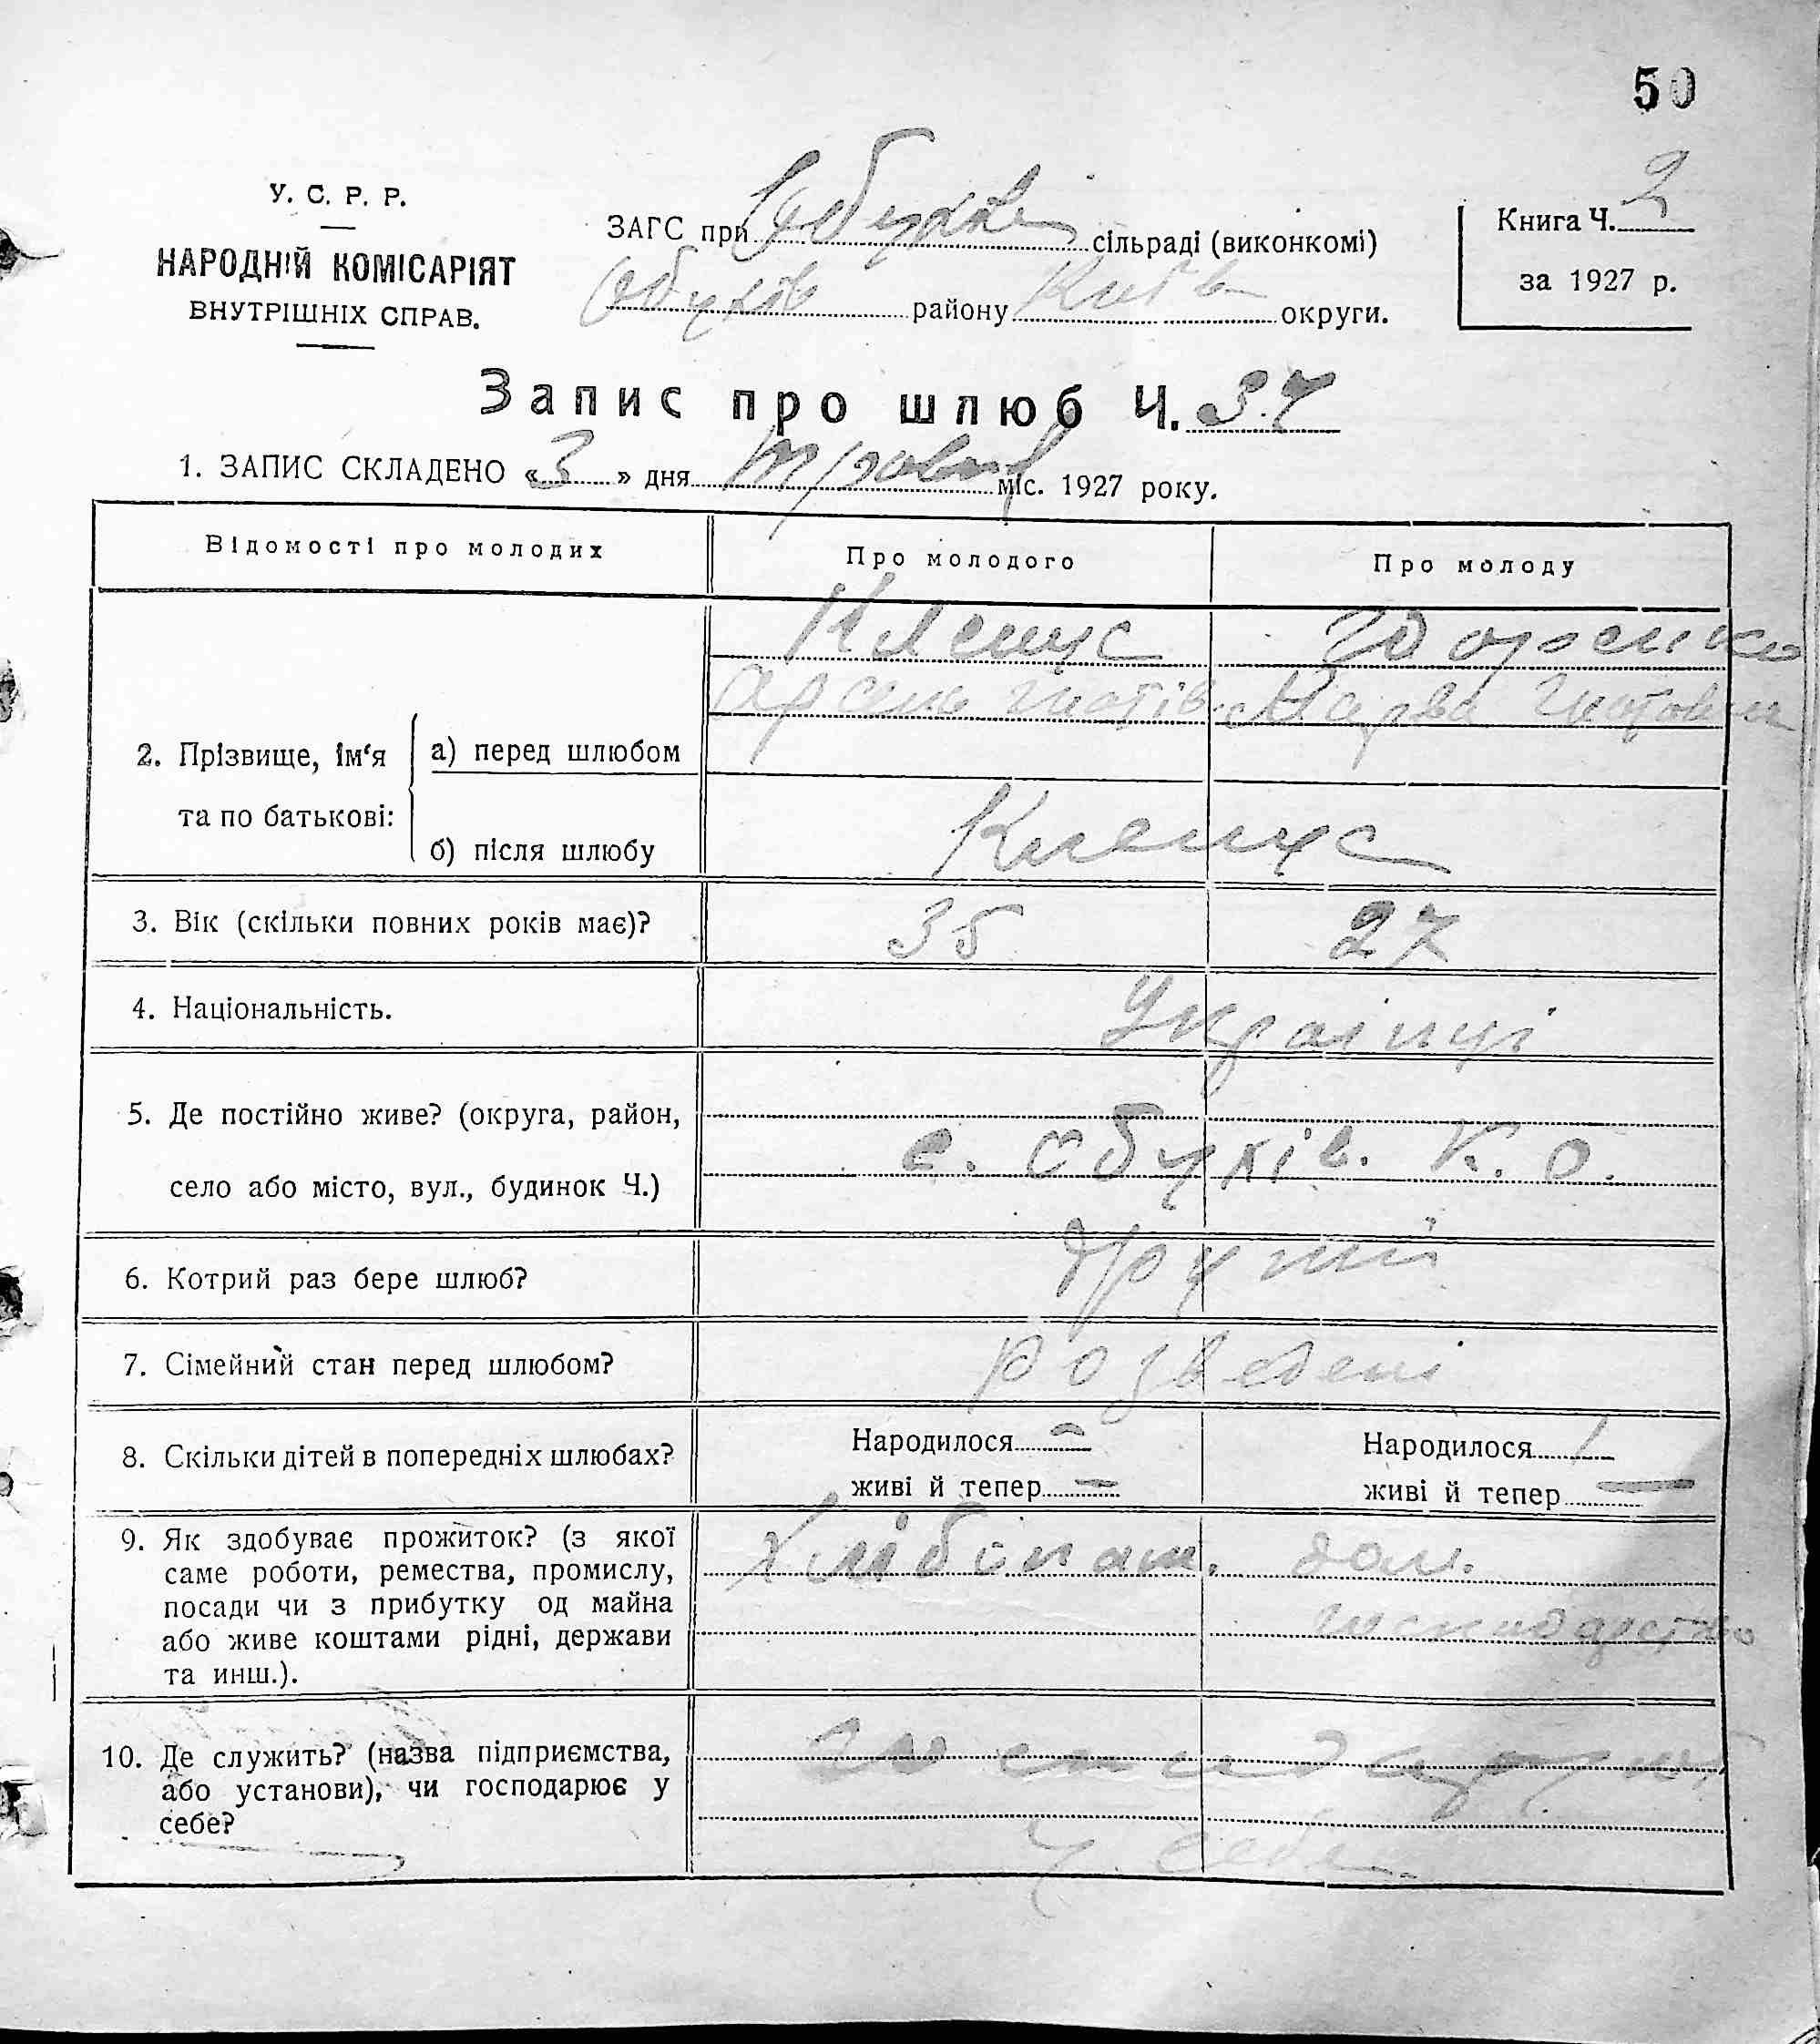 50
У. С. Р. Р.
НАРОДНІЙ КОМІСАРІЯТ
ВНУТРІШНІХ СПРАВ.
ЗАГС при сільраді (виконкомі)
Обухів району Київ округи.
Книга Ч. 2
за 1927 р.
Запис про шлюб Ч. 37
1. ЗАПИС СКЛАДЕНО «3» дня Травня міс. 1927 року.
Відомості про молодих
Про молодого
Про молоду
2. Прізвище, ім'я та по батькові:
а) перед шлюбом
Клещус
Арсень Гнатів
Марва
б) після шлюбу
Клещус
3. Вік (скільки повних років має)?
35
27
4. Національність.
Українці
5. Де постійно живе? (округа, район,
село або місто, вул., будинок Ч.)
с. Обухів. К. О.
6. Котрий раз бере шлюб?
другий
7. Сімейний стан перед шлюбом?
розведені
8. Скільки дітей в попередніх шлюбах?
Народилося —
живі й тепер —
Народилося 1
живі й тепер —
9. Як здобуває прожиток? (з якої
саме роботи, ремества, промислу,
посади чи з прибутку од майна
або живе коштами рідні, держави
та инш.).
Хлібопаш.
дом.
господарство
10. Де служить? (назва підприємства,
або установи), чи господарює у
себе?
господарюють
у себе